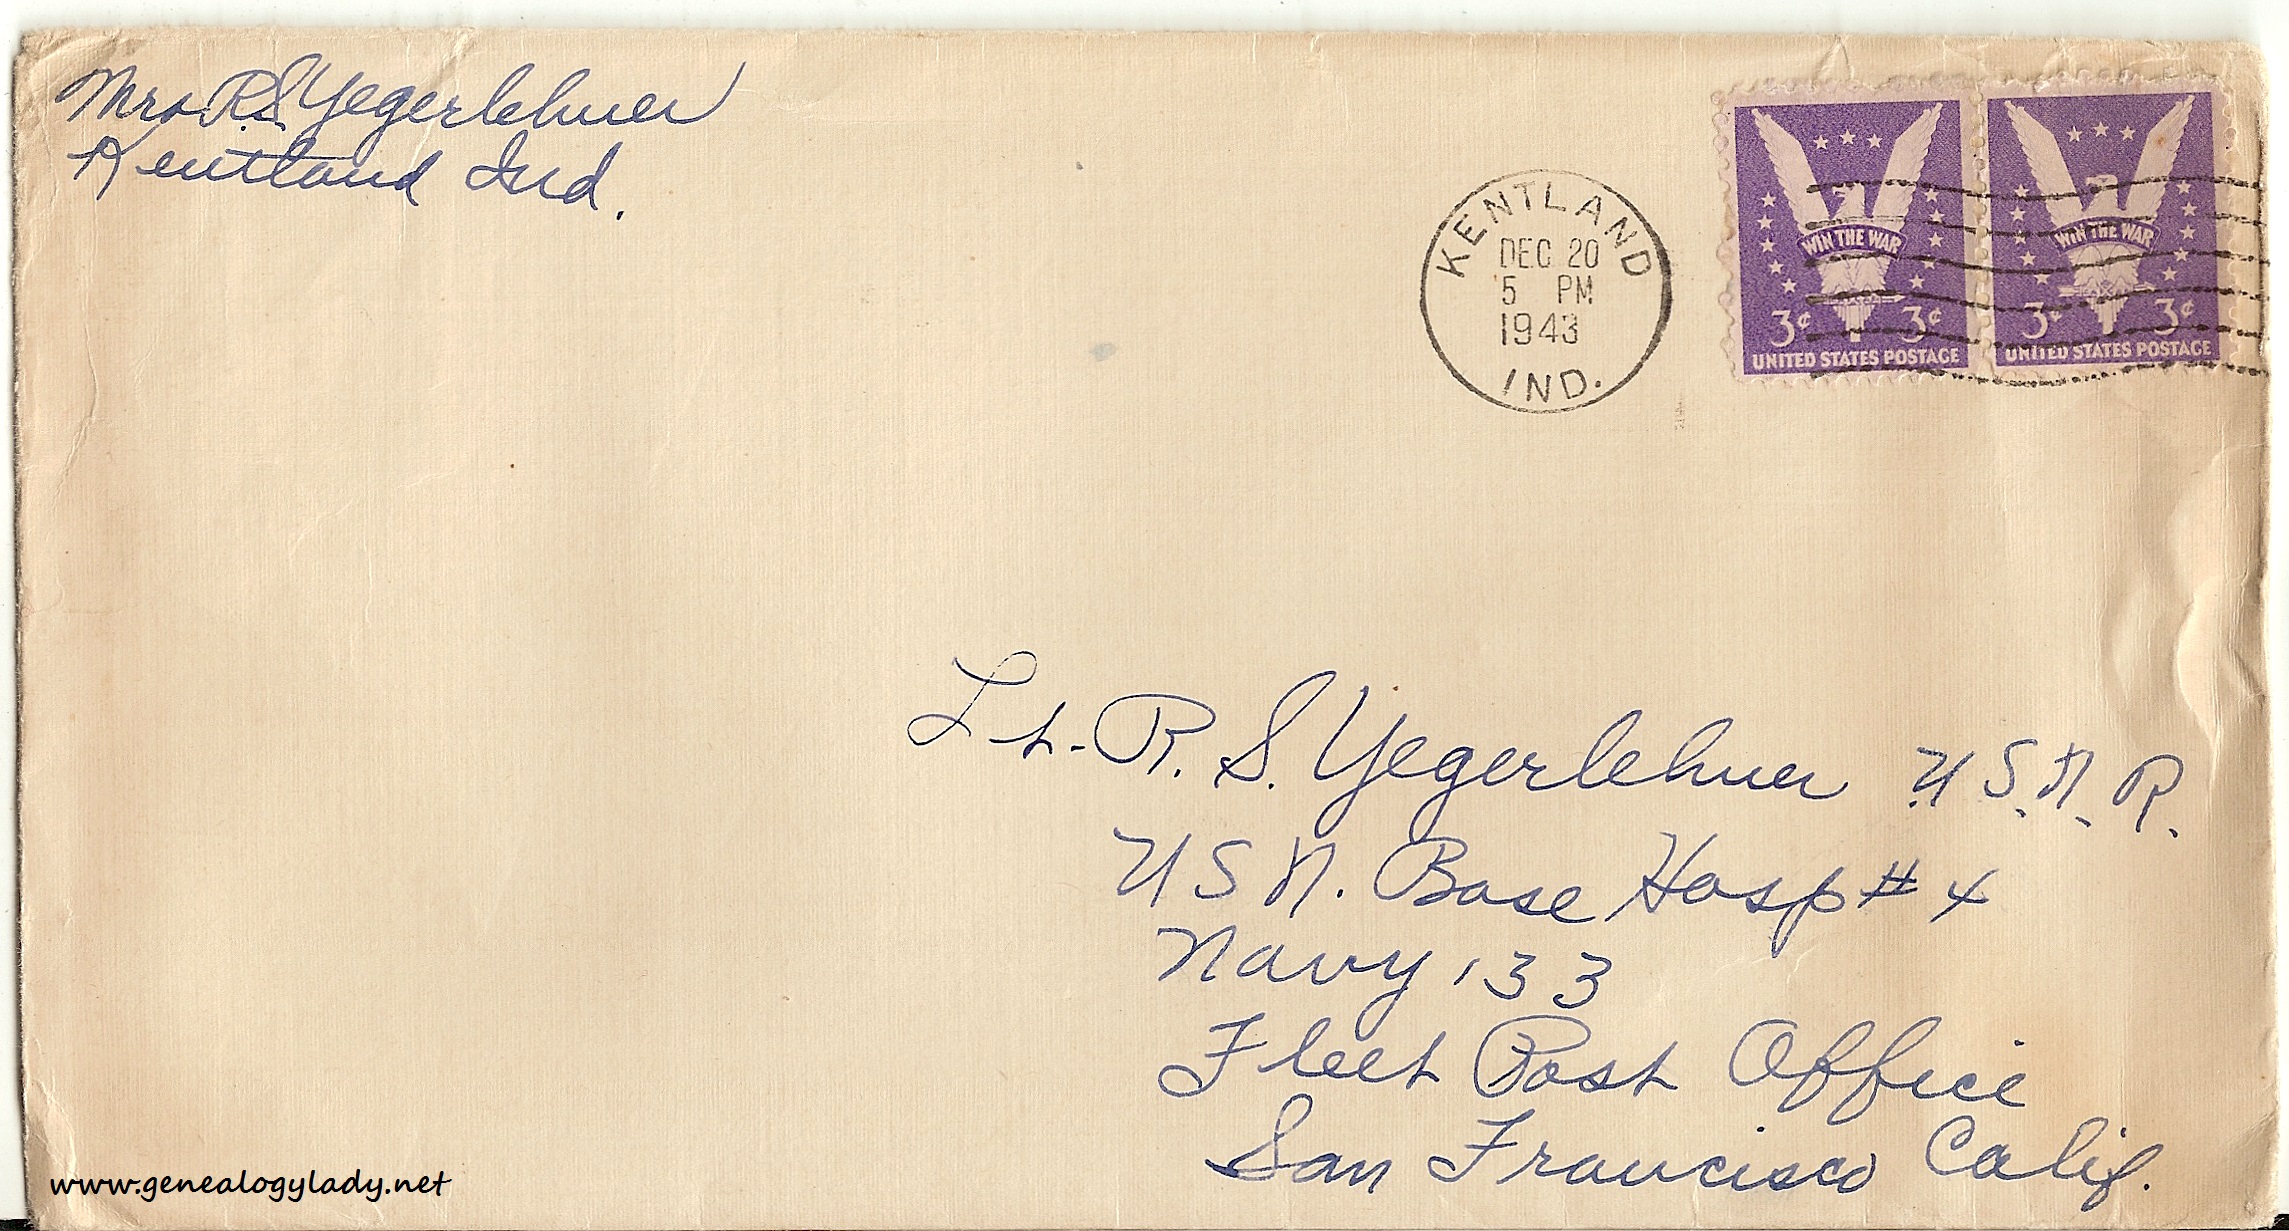 Mrs R.S. Yegerlehner
Kentland Ind.
KENTLAND
DEC 20
5 PM
1943
IND.
WIN THE WAR
3¢ 3¢
UNITED STATES POSTAGE
WIN THE WAR
3¢ 3¢
UNITED STATES POSTAGE
Lt. R. S. Yegerlehner U.S.N.R.
U S N. Base Hosp # 4
Navy 133
Fleet Post Office
San Francisco Calif.
www.genealogylady.net